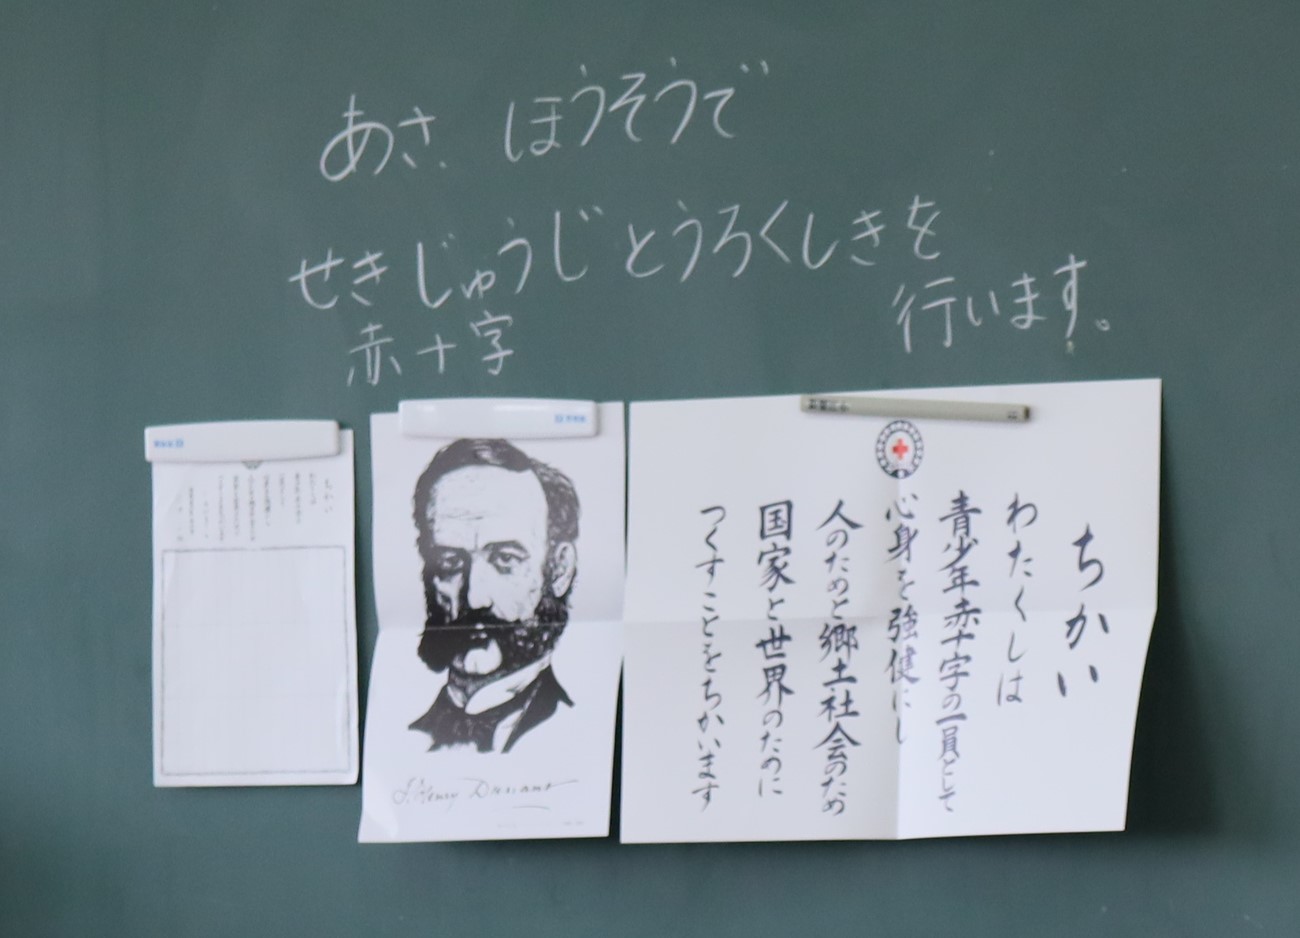 あさ、ほうそうで
せきじゅうじとうろくしきを
行います。
赤十字
ちかい
J. Henry Dunant
ちかい
わたくしは
青少年赤十字の一員として
心身を強健にし
人のためと郷土社会のため
国家と世界のために
つくすことをちかいます